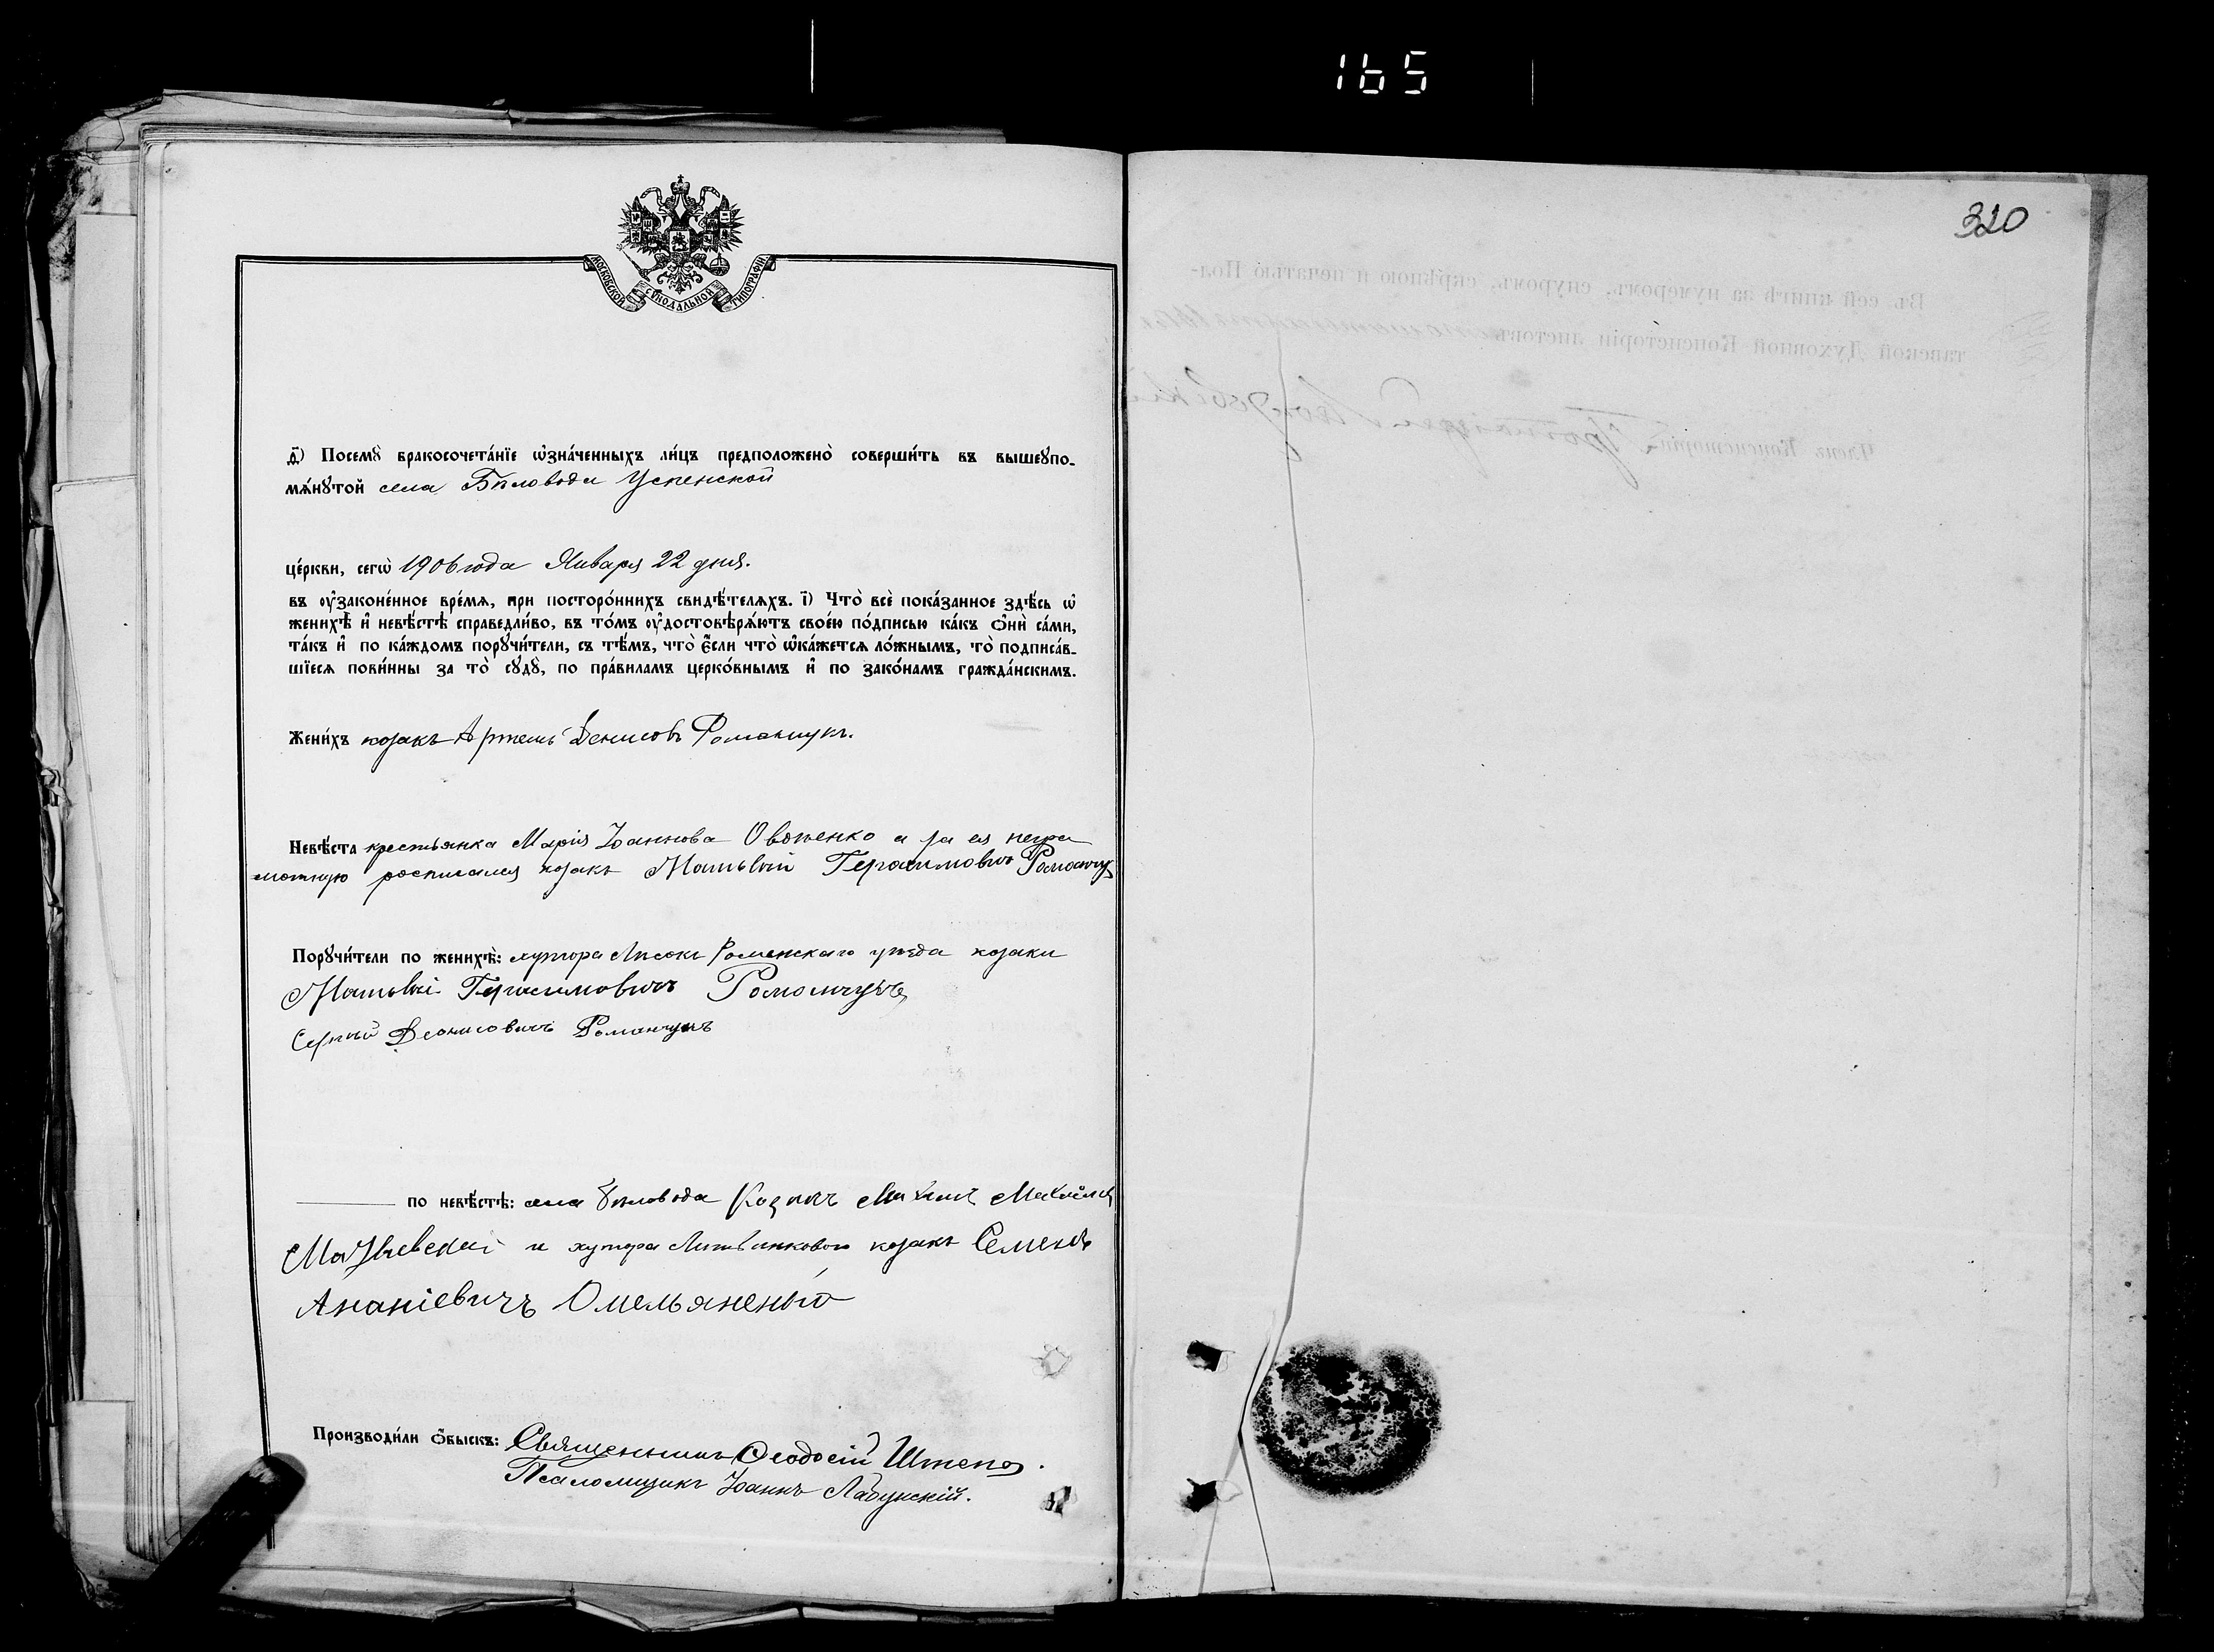 165
320
МОСКОВСКОЙ СѴНОДАЛЬНОЙ ТИПОГРАФІИ
д҃) Посемꙋ̀ бракосочета́нїе ѡ҆зна́ченныхъ ли́цъ предположено̀ соверши́ть въ вышеꙋпо-
мѧ́нꙋтой села Бѣловода Успенской
це́ркви, сегѡ̀ 1906 года Января 22 дня.
въ оу҆законе́нное вре́мѧ, при посторо́ннихъ свидѣ́телѧхъ. і҃) Что̀ всѐ пока́занное здѣ́сь ѡ҆
женихѣ̀ и҆ невѣ́стѣ справедли́во, въ то́мъ оу҆достовѣрѧ́ютъ свое́ю по́дписью ка́къ ѻ҆нѝ са́ми,
та́къ и҆ по ка́ждомъ порꙋчи́тели, съ тѣ́мъ, что̀ є҆́сли что̀ ѡ҆ка́жется ло́жнымъ, то̀ подписа́в-
шїеся пови́нны за то̀ сꙋдꙋ̀, по пра́виламъ церко́внымъ и҆ по зако́намъ гражда́нскимъ.
Жени́хъ козакъ Артемъ Денисовъ Романчукъ.
Невѣ́ста крестьянка Марія Іоаннова а за ея негра
мотную росписался козакъ Матвѣй Герасимовичъ Романчу
Порꙋчи́тели по женихѣ̀: хутора Лисокъ Роменскаго уѣзда козаки
Матвѣй Герасимовичъ Романчукъ
Сергѣй Деонисовичъ Романчукъ
по невѣ́стѣ: села Бѣловода Козакъ
и хутора козакъ Семенъ
Ананіевичъ Омельяненко
Производи́ли ѻ҆́быскъ: Священникъ Ѳеодосій Штепа.
Псаломщикъ Іоаннъ Лабунскій.
Въ сей книгѣ за нумеромъ, снуромъ, скрѣпою и печатью Пол-
тавской Духовной Консисторіи листовъ
Членъ Консисторіи, Протоіерей